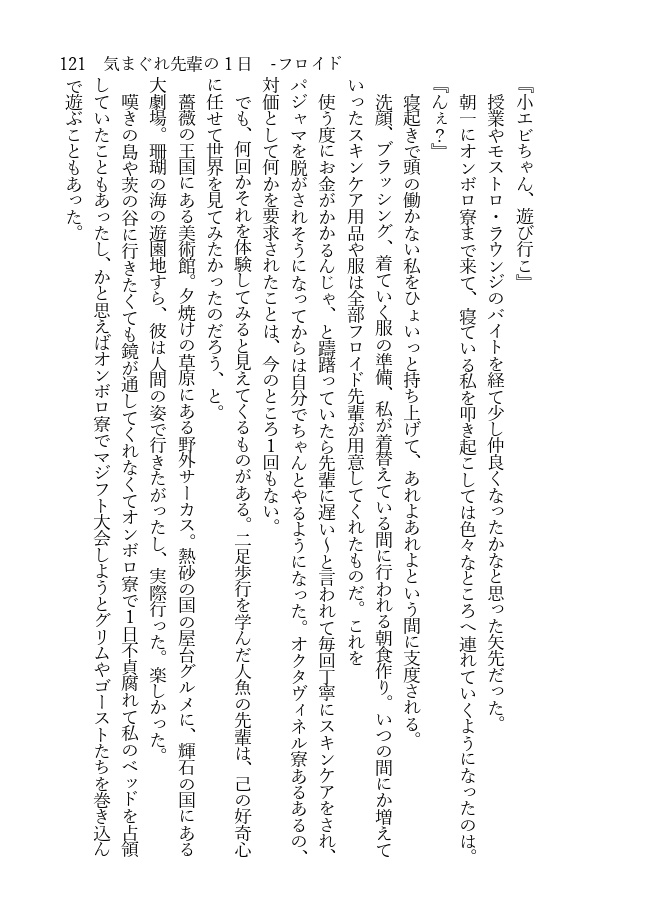 121 気まぐれ先輩の1日 -フロイド
『小エビちゃん、遊び行こ』
授業やモストロ・ラウンジのバイトを経て少し仲良くなったかなと思った矢先だった。
朝一にオンボロ寮まで来て、寝ている私を叩き起こしては色々なところへ連れていくようになったのは。
『んぇ？』
寝起きで頭の働かない私をひょいっと持ち上げて、あれよあれよという間に支度される。
洗顔、ブラッシング、着ていく服の準備、私が着替えている間に行われる朝食作り。いつの間にか増えて
いったスキンケア用品や服は全部フロイド先輩が用意してくれたものだ。これを
使う度にお金がかかるんじゃ、と躊躇っていたら先輩に遅い～と言われて毎回丁寧にスキンケアをされ、
パジャマを脱がされそうになってからは自分でちゃんとやるようになった。オクタヴィネル寮あるあるの、
対価として何かを要求されたことは、今のところ1回もない。
でも、何回かそれを体験してみると見えてくるものがある。二足歩行を学んだ人魚の先輩は、己の好奇心
に任せて世界を見てみたかったのだろう、と。
薔薇の王国にある美術館。夕焼けの草原にある野外サーカス。熱砂の国の屋台グルメに、輝石の国にある
大劇場。珊瑚の海の遊園地すら、彼は人間の姿で行きたがったし、実際行った。楽しかった。
嘆きの島や茨の谷に行きたくても鏡が通してくれなくてオンボロ寮で1日不貞腐れて私のベッドを占領
していたこともあったし、かと思えばオンボロ寮でマジフト大会しようとグリムやゴーストたちを巻き込ん
で遊ぶこともあった。